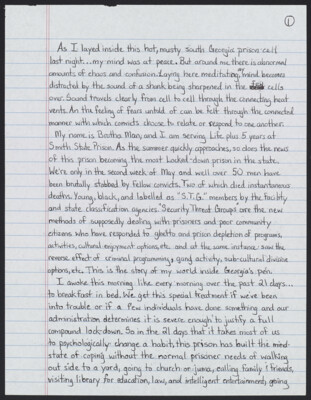 1
As I layed inside this hot, musty south Georgia prison cell
last night... my mind was at peace. But around me there is abnormal
amounts of chaos and confusion. Laying here meditating, my mind becomes
distracted by the sound of a shank being sharpened in the few cells
over. Sound travels clearly from cell to cell through the connecting heat
vents. An the feeling of fears untold of can be felt through the connected
manner with which convicts choose to relate or respond to one another.
My name is Brotha Man, and I am serving Life plus 5 years at
Smith State Prison. As the summer quickly approaches, so does the news
of this prison becoming the most Locked-down prison in the state.
We're only in the second week of May and well over 50 men have
been brutally stabbed by fellow convicts. Two of which died instantaneous
deaths. Young, black, and labelled as "S.T.G." members by the facility
and state classification agencies. "Security Threat Groups" are the new
methods of supposedly dealing with prisoners and poor community
citizens who have responded to ghetto and prison depletion of programs,
activities, cultural enjoyment options, etc. and at the same instance saw the
reverse effect of criminal programming, gang activity, sub-cultural divisive
options, etc. This is the story of my world inside Georgia's pen.
I awoke this morning like every morning over the past 21 days...
to breakfast in bed. We get this special treatment if we've been
into trouble or if a few individuals have done something and our
administration determines it is severe enough to justify a full
compound lockdown. So in the 21 days that it takes most of us
to psychologically change a habit, this prison has built the mind-
state of coping without the normal prisoner needs of walking
out side to a yard, going to church or juma, calling family & friends,
visiting library for education, law, and intelligent entertainment, going